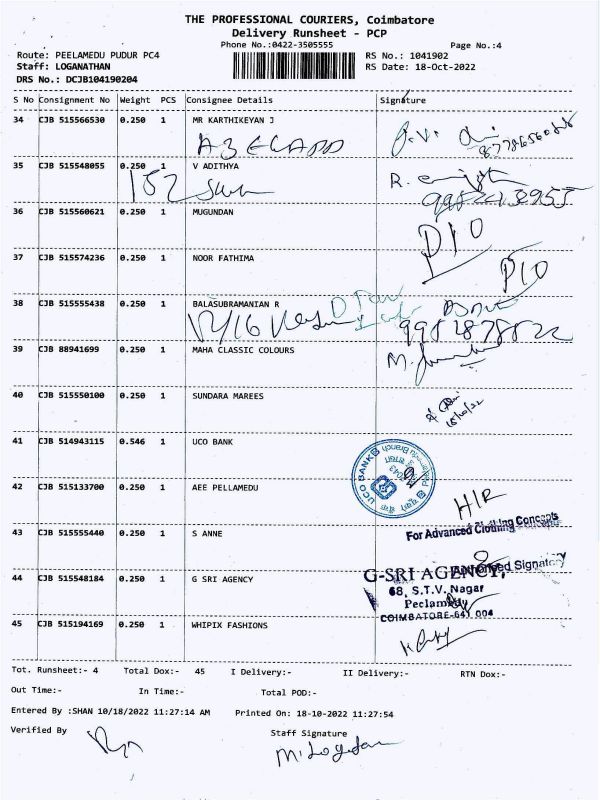 THE PROFESSIONAL COURIERS, Coimbatore
Delivery Runsheet - PCP
Phone No.:0422-3505555
Page No.:4
Route: PEELAMEDU PUDUR PC4
RS No.: 1041902
Staff: LOGANATHAN
RS Date: 18-Oct-2022
DRS No.: DCJB104190204
S No Consignment No Weight PCS Consignee Details Signature
34 CJB 515566530 0.250 1 MR KARTHIKEYAN J
35 CJB 515548055 0.250 1 V ADITHYA
152
36 CJB 515560621 0.250 1 MUGUNDAN
D10
37 CJB 515574236 0.250 1 NOOR FATHIMA
P10
38 CJB 515555438 0.250 1 BALASUBRAMANIAN R
39 CJB 88941699 0.250 1 MAHA CLASSIC COLOURS
40 CJB 515550100 0.250 1 SUNDARA MAREES
18/10/22
41 CJB 514943115 0.546 1 UCO BANK
UCO BANK
Peelamedu Branch
42 CJB 515133700 0.250 1 AEE PELLAMEDU
H/R
43 CJB 515555440 0.250 1 S ANNE
For Advanced Clothing Concepts
Authorised Signatory
44 CJB 515548184 0.250 1 G SRI AGENCY
G-SRI AGENCY,
68, S.T.V. Nagar
Peelamedu
COIMBATORE-641 004
45 CJB 515194169 0.250 1 WHIPIX FASHIONS
Tot. Runsheet:- 4 Total Dox:- 45 I Delivery:- II Delivery:- RTN Dox:-
Out Time:- In Time:- Total POD:-
Entered By :SHAN 10/18/2022 11:27:14 AM Printed On: 18-10-2022 11:27:54
Verified By
Staff Signature
M. Logathan